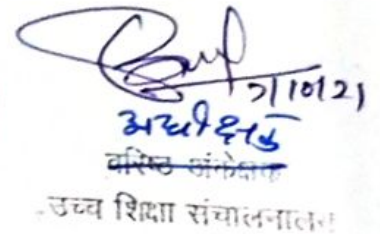 7/10/21
अधीक्षक
वरिष्ठ अंकेक्षक
उच्च शिक्षा संचालनालय